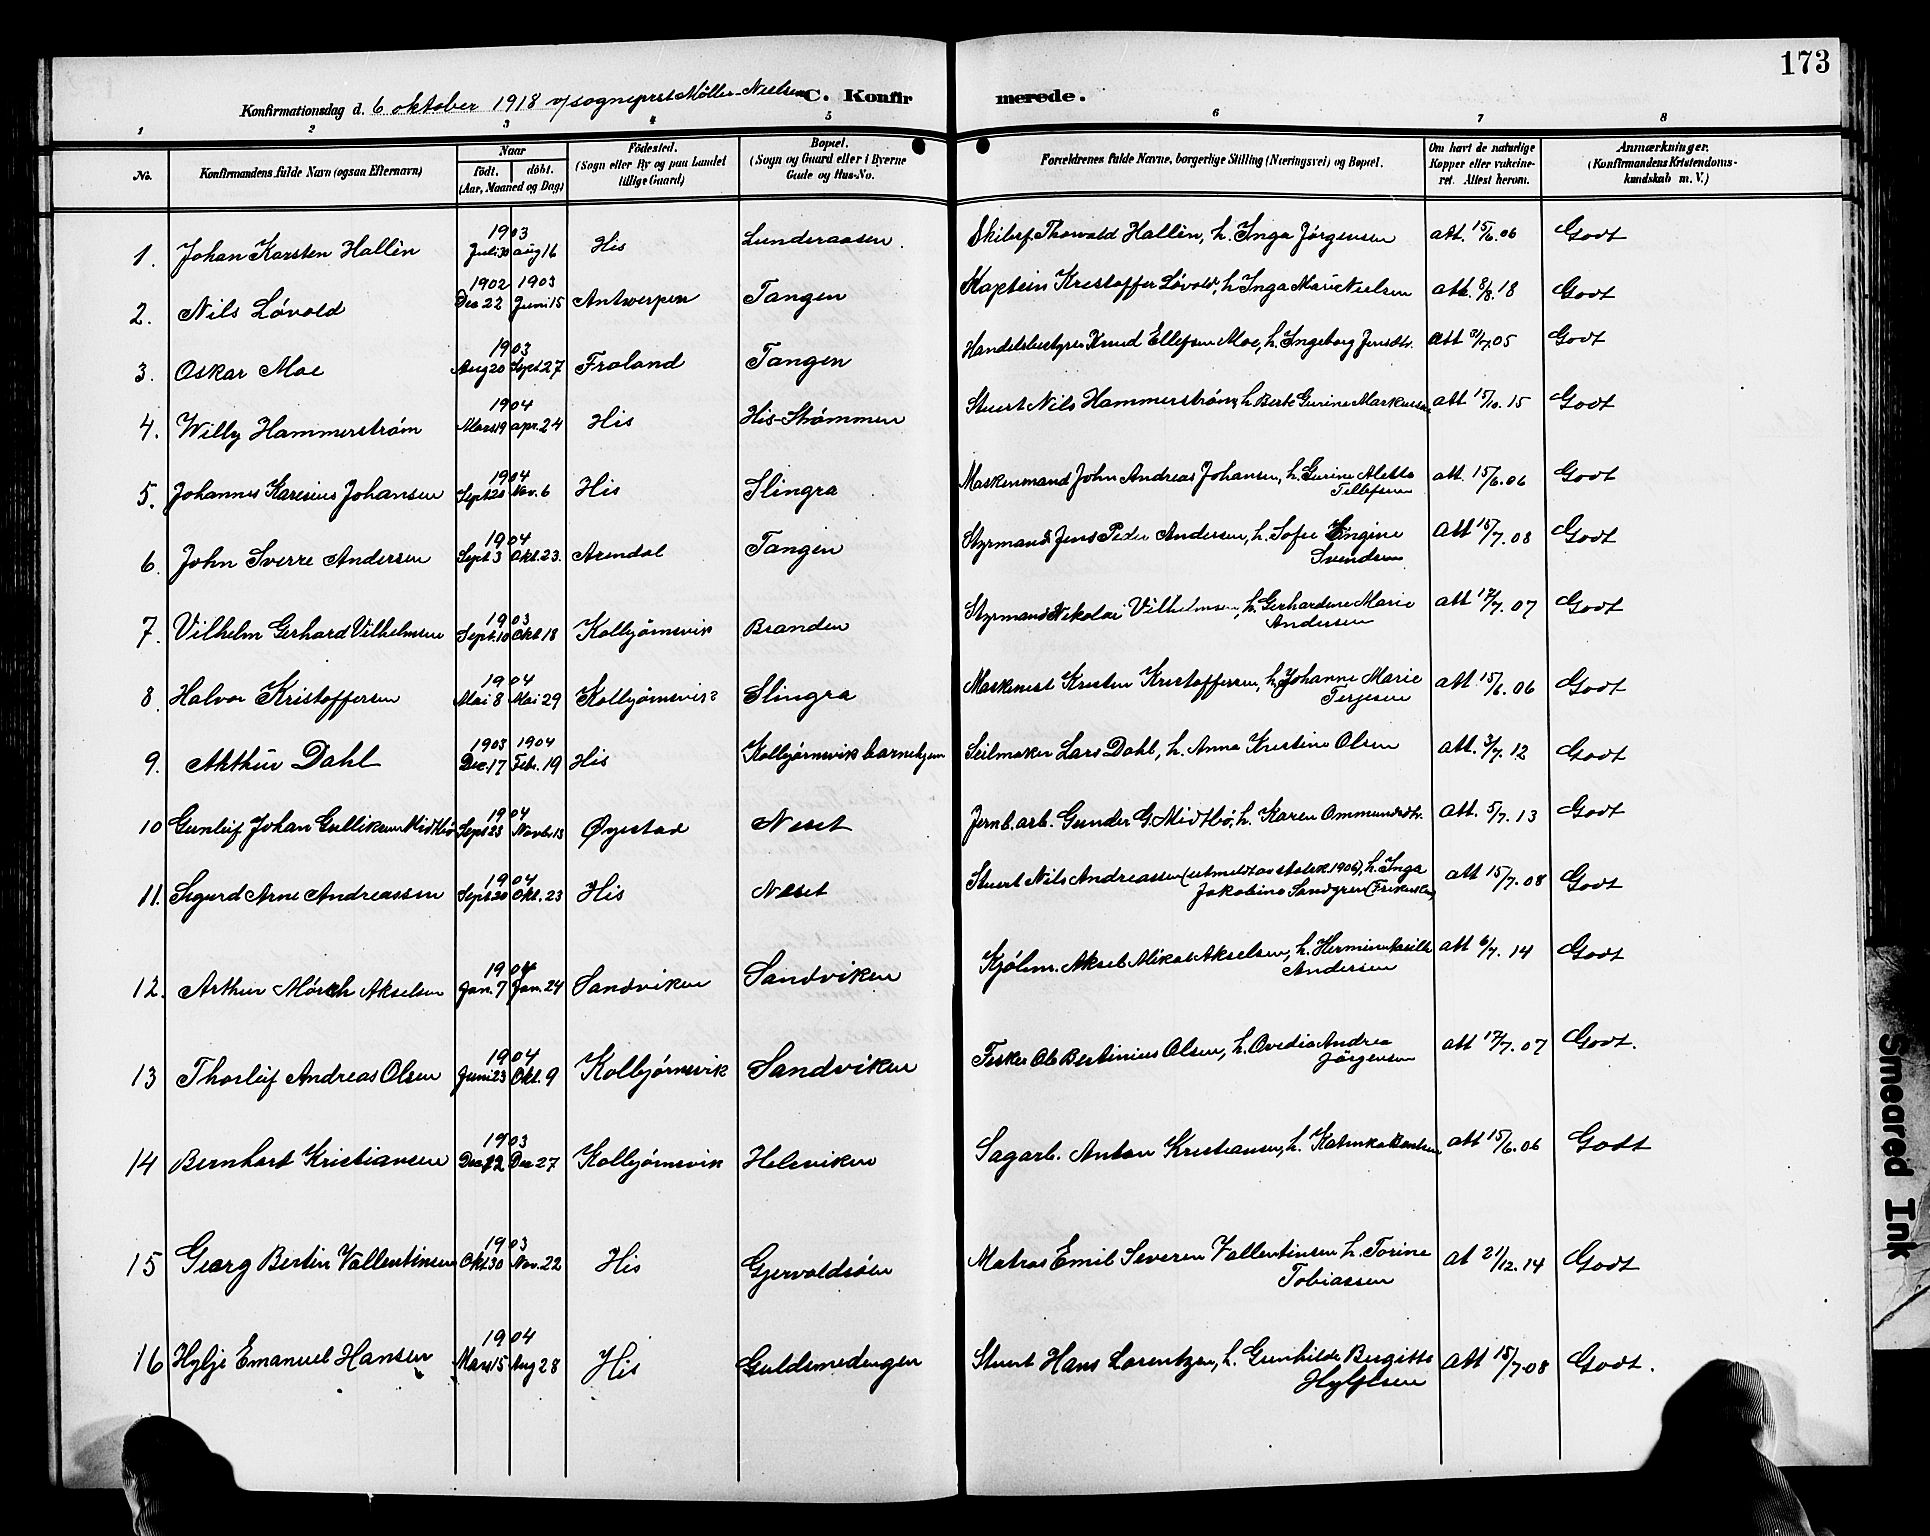 173
Konfirmationsdag d. 6 oktober 1918 v/ sogneprest Møller-Nielsen C. Konfirmerede.
1 2 3 4 5 6 7 8
No. Konfirmandens fulde Navn (ogsaa Efternavn) Naar født. døbt. (Aar, Maaned og Dag) Fødested. (Sogn eller By og paa Landet tillige Gaard) Bopæl. (Sogn og Gaard eller i Byerne Gade og Hus-No. Forældrenes fulde Navne, borgerlige Stilling (Næringsvei) og Bopæl. Om havt de naturlige Kopper eller vakcineret. Attest herom. Anmærkninger. (Konfirmandens Kristendomskundskab m. V.)
1. Johan Karsten Hallén 1903 Juli 30 aug 16 His Lunderaasen. Skibsf. Thorvald Hallén, h. Inga Jörgensen att. 15/6.06 Godt
2. Nils Lövold 1902 Dec 22 1903 Juni 15 Antwerpen Tangen Kaptein Kristoffer Lövold, h. Inga Marie Nielsen att. 8/8.18 Godt
3. Oskar Moe 1903 Aug 20 Sept. 27 Froland Tangen Handelsbestyrer Knud Ellefsen Moe, h. Ingeborg Jensdtr. att /7.05 Godt
4. Willy Hammerstrøm 1904 Mars 19 apr. 24 His His-Strømmen Stuert Nils Hammerstrøm, h. Berte Gurine Markussen att 15/10.15 Godt
5. Johannes Karesius Johansen 1904 Sept 20 Nov. 6 His Slingra Maskenmand John Andreas Johansen, h. Gurine Aletta Tellefsen att. 15/6.06 Godt
6. John Sverre Andersen 1904 Sept 3 Okt. 23. Arendal Tangen Styrmand Jens Peder Andersen, h. Sofie Engine Svendsen att 15/7.08 Godt
7. Vilhelm Gerhard Vilhelmsen 1903 Sept. 10 Okt. 18 Kolbjørnsvik Branden Styrmand Nikolai Vilhelmsen, h. Gerhardine Marie Andersen att 17/7.07 Godt
8. Halvor Kristoffersen 1904 Mai 8 Mai 29 Kolbjørnsvik Slingra Maskinist Kristen Kristoffersen, h. Johanne Marie Terjesen att 15/6.06 Godt
9. Arthur Dahl 1903 Dec. 17 1904 Febr. 19 His Kolbjørnsvik barnehjem Seilmaker Lars Dahl, h. Anna Kristine Olsen att. 3/7.12 Godt
10 Gunleif Johan Gulliksen Midtbö 1904 Sept 23 Novbr. 13 Øyestad Neset Jernb. arb. Gunder G. Midtbö, h. Karen Ommundsdtr. att. 5/7.13 Godt
11. Sigurd Arne Andreassen 1904 Sept. 20 Okt. 23 His Neset Stuert Nils Andreassen (utmeldt av statsk. 1906), h. Inga Jakobine Sandgren (Frikirken) att 15/7.08 Godt
12. Arthur Mörch Akselsen 1904 Jan. 7 Jan. 24 Sandviken Sandviken Kjölm. Aksel Mikal Akselsen, h. Hermine Andersen att 6/7.14 Godt
13 Thorleif Andreas Olsen 1904 Juni 23 Okt. 9 Kolbjørnsvik Sandviken Fisker Ole Bertinius Olsen, h. Ovedia Andrea Jörgensen att 17/7.07 Godt.
14 Bernhart Kristiansen 1903 Dec. 12 Dec 27 Kolbjørnsvik Helsviken Sagarb. Anton Kristiansen, h. Katinka Bentsen att 15/6.06 Godt
15 Georg Bertin Vallentinsen 1903 Okt. 30 Nov. 22 His Gjervoldsöen Matros Emil Severen Vallentinsen h. Torine Tobiassen at 21/12.14 Godt
16 Hylje Emanuel Hansen 1904 Mars 15 Aug 28 His Guldsmedengen Stuert Hans Lorentzen, h. Gunhilde Birgitte Hyljesen att 15/7.08 Godt.
Smeared Ink